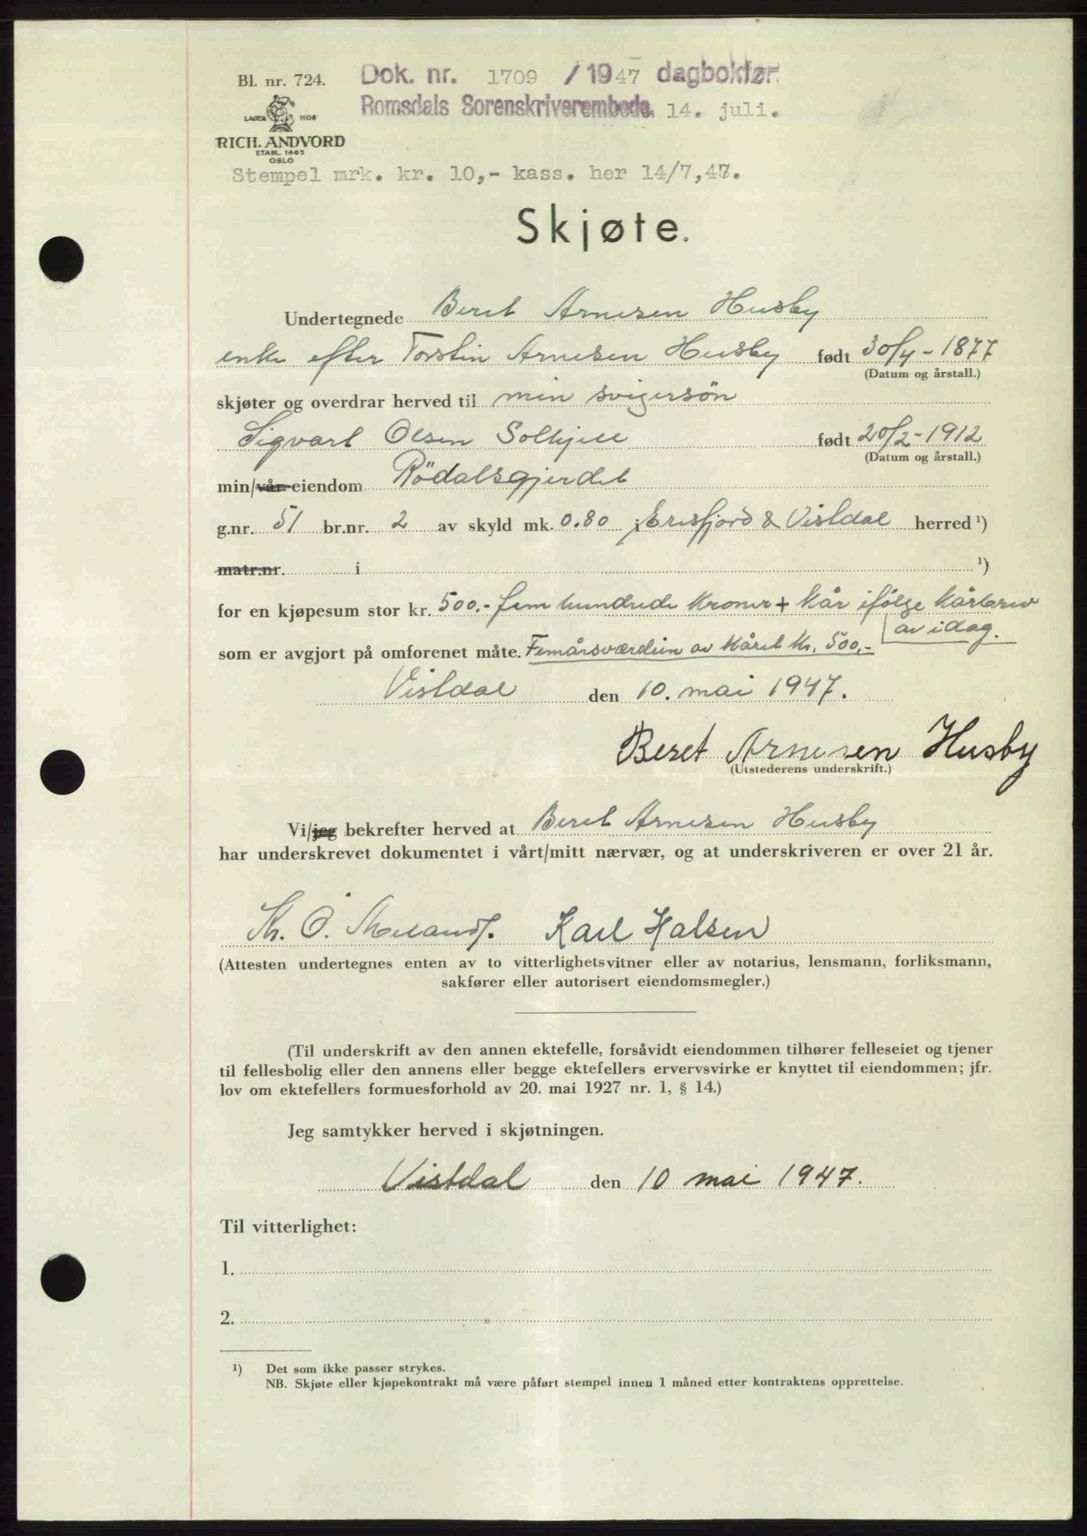 Bl. nr. 724.
Dok. nr. 1709 /1947 dagbokfør.
LAGER HOS
Romsdals Sorenskriverembede, 14. juli.
RICH. ANDVORD
ETABL. 1865
OSLO
Stempel mrk. kr. 10,- kass. her 14/7,47.
Skjøte.
Undertegnede Beret Arnesen Husby
enke efter Torstin Arnesen Husby født 30/4-1877
(Datum og årstall.)
skjøter og overdrar herved til min svigersön
Sigvart Olsen Solhjell født 20/2-1912
(Datum og årstall.)
min/vår eiendom Rödalsgjerdet
g.nr. 51 br.nr. 2 av skyld mk. 0.80 i Eresfjord & Vistdal herred ¹)
matr.nr. i ¹)
for en kjøpesum stor kr. 500.- fem hundrede kroner + kår ifölge kårbrev
av idag.
som er avgjort på omforenet måte. Femårsværdien av kåret kr. 500,-
Vistdal den 10. mai 1947.
Beret Arnesen Husby
(Utstederens underskrift.)
Vi/jeg bekrefter herved at Beret Arnesen Husby
har underskrevet dokumentet i vårt/mitt nærvær, og at underskriveren er over 21 år.
O. Karl Halsen
(Attesten undertegnes enten av to vitterlighetsvitner eller av notarius, lensmann, forliksmann,
sakfører eller autorisert eiendomsmegler.)
(Til underskrift av den annen ektefelle, forsåvidt eiendommen tilhører felleseiet og tjener
til fellesbolig eller den annens eller begge ektefellers ervervsvirke er knyttet til eiendommen; jfr.
lov om ektefellers formuesforhold av 20. mai 1927 nr. 1, § 14.)
Jeg samtykker herved i skjøtningen.
Vistdal den 10 mai 1947.
Til vitterlighet:
1.
2.
¹) Det som ikke passer strykes.
NB. Skjøte eller kjøpekontrakt må være påført stempel innen 1 måned etter kontraktens opprettelse.